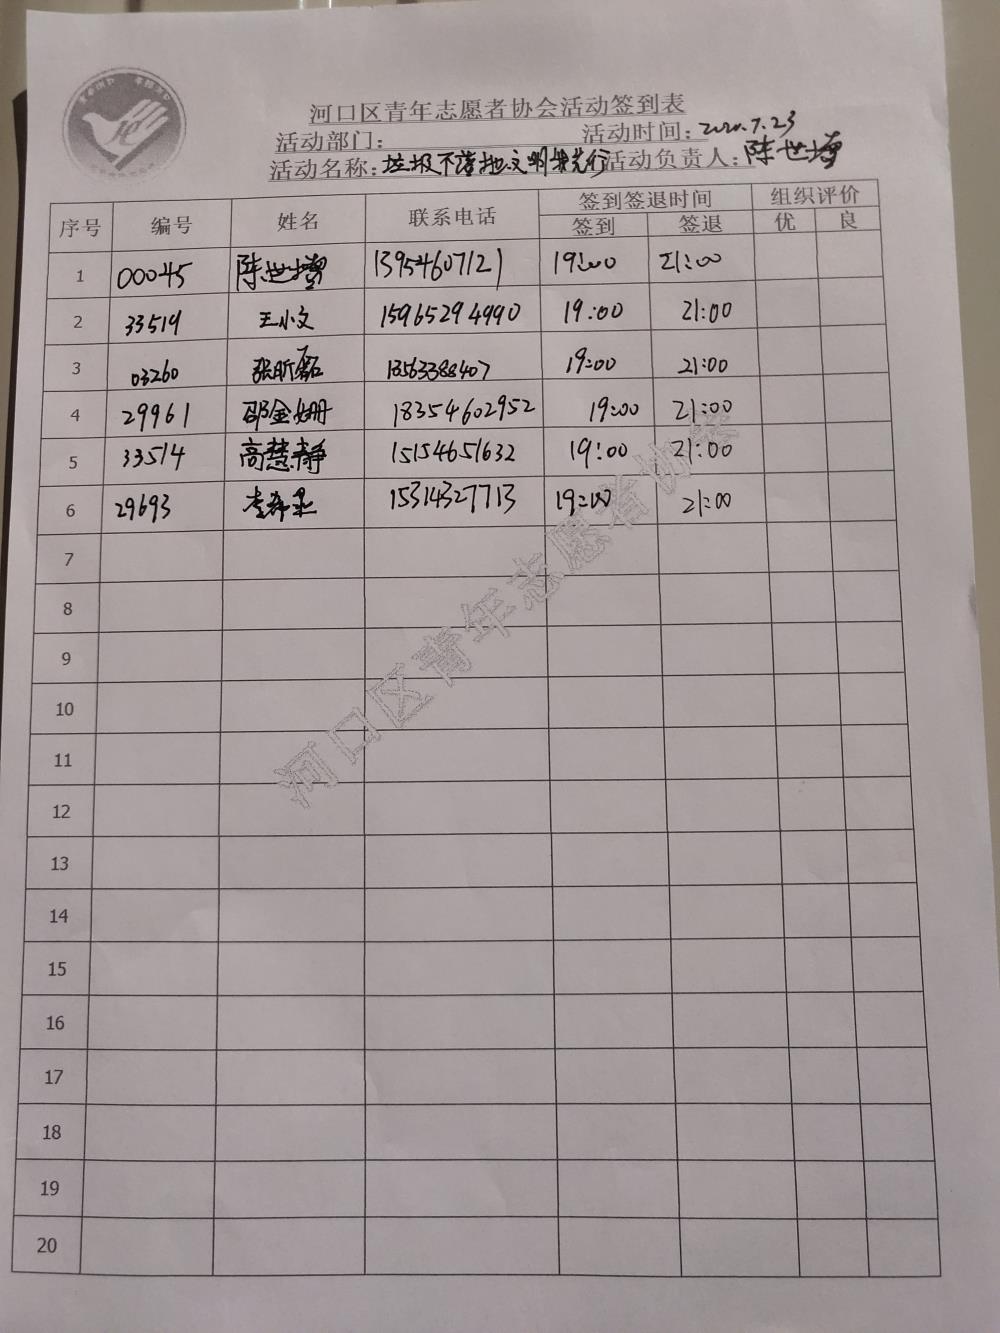 河口区青年志愿者协会活动签到表
活动部门: 活动时间: 2020.7.23
活动名称: 垃圾不落地.文明先行 活动负责人: 陈世增
序号 编号 姓名 联系电话 签到签退时间 组织评价
签到 签退 优 良
1 00045 陈世增 13954607121 19:00 21:00
2 33519 王小文 15965294990 19:00 21:00
3 03260 张昕磊 13563388407 19:00 21:00
4 29961 邵金姗 18354602952 19:00 21:00
5 33514 高慧静 15154651632 19:00 21:00
6 29693 李希 15314327713 19:00 21:00
7
8
9
10
11
12
13
14
15
16
17
18
19
20
河口区青年志愿者协会